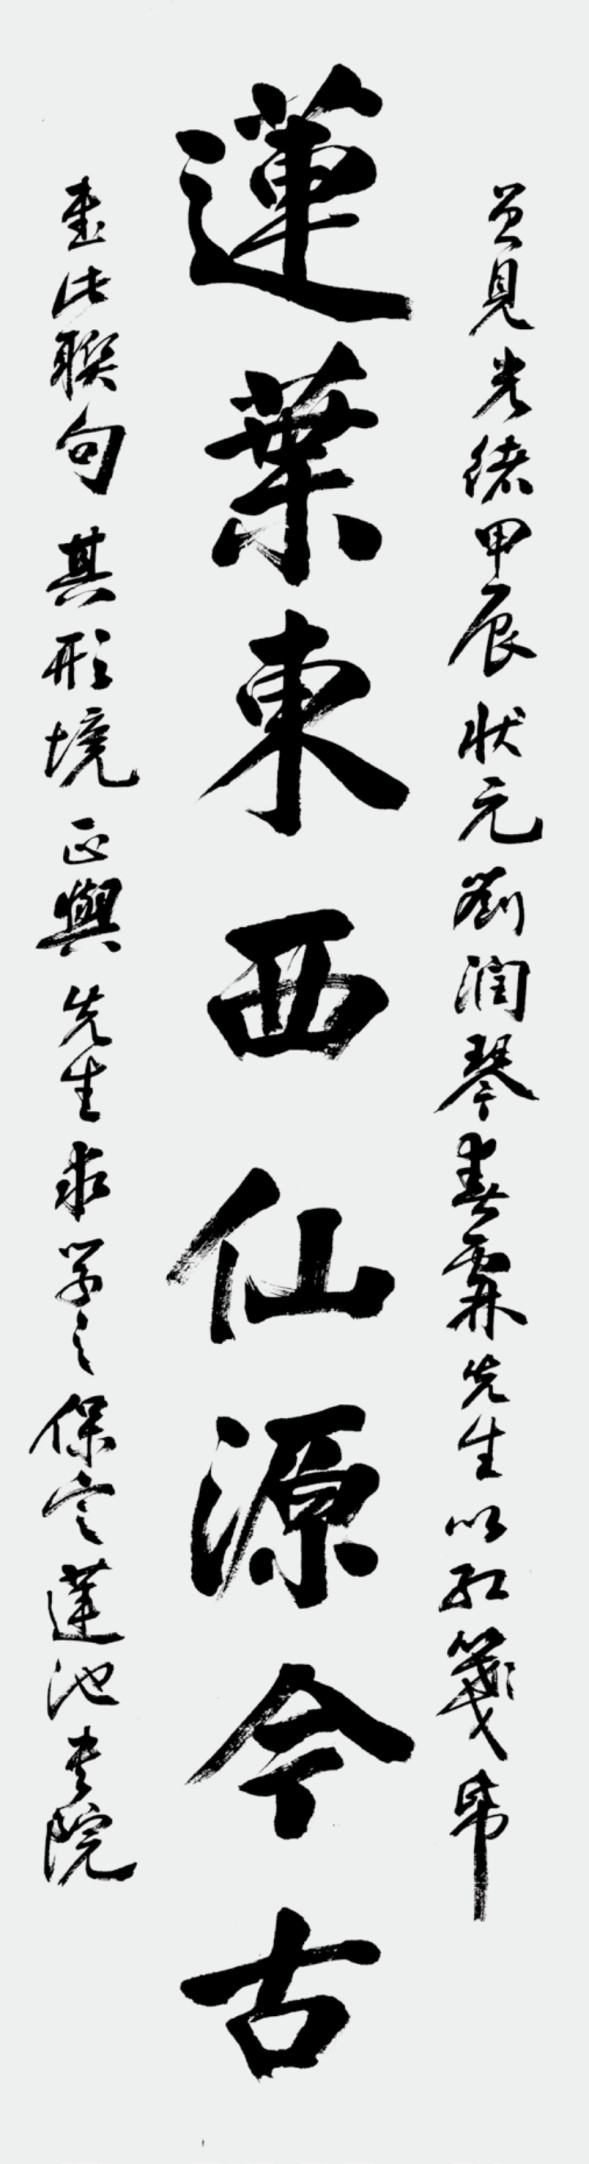 曾見光緒甲辰狀元劉潤琴春霖先生以紅箋帋
蓮葉東西仙源今古
書此聯句其形境正與先生求學之保定蓮池書院